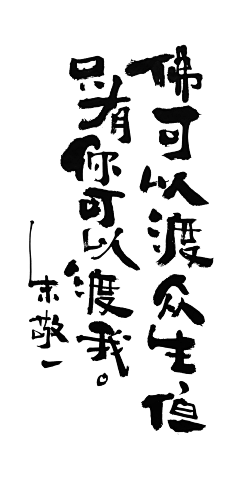 佛可以渡众生但
只有你可以渡我。
朱敬一